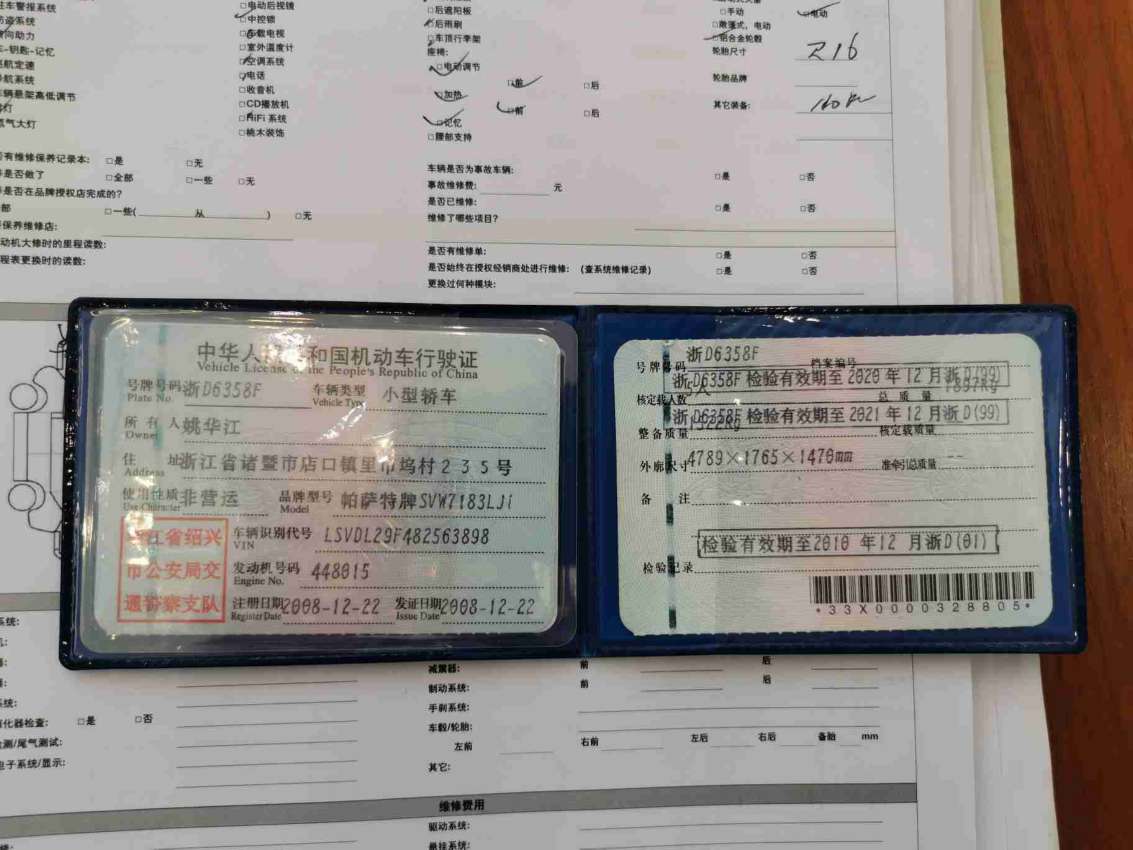 驻车警报系统 □电动后视镜 □后遮阳板
防盗系统 □中控锁 □后雨刷 □手动 □电动
转向助力 □车载电视 □车顶行李架 □敞篷式,电动
车-钥匙-记忆 □室外温度计 座椅: □铝合金轮毂
巡航定速 □空调系统 □电动调节 轮胎尺寸 R16
导航系统 □电话 □前 □后 轮胎品牌
车辆悬架高低调节 □收音机 □加热
□CD播放机 □前 □后 其它装备:
氙气大灯 □HiFi 系统 □记忆
□桃木装饰 □腰部支持
有维修保养记录本: □是 □无 车辆是否为事故车辆: □是 □否
是否做了 □全部 □一些 □无 事故维修费: 元
是否在品牌授权店完成的? 是否已维修: □是 □否
部 □一些( 从 ) □无 维修了哪些项目?
保养维修店:
动机大修时的里程读数: 是否有维修单: □是 □否
程表更换时的读数: 是否始终在授权经销商处进行维修: (查系统维修记录) □是 □否
更换过何种模块:
中华人民共和国机动车行驶证
Vehicle License of the People's Republic of China
号牌号码 浙D6358F 车辆类型 小型轿车
Plate No. Vehicle Type
所有人 姚华江
Owner
住址 浙江省诸暨市店口镇里市坞村235号
Address
使用性质 非营运 品牌型号 帕萨特牌SVW7183LJi
Use Character Model
浙江省绍兴
市公安局交
通警察支队
车辆识别代号 LSVDL29F482563898
VIN
发动机号码 448015
Engine No.
注册日期 2008-12-22 发证日期 2008-12-22
Register Date Issue Date
号牌号码 浙D6358F 档案编号
浙D6358F 检验有效期至2020年12月浙D(99)
核定载人数 5人 总质量
浙D6358F 检验有效期至2021年12月浙D(99)
整备质量 核定载质量
外廓尺寸 4789×1765×1470mm 准牵引总质量 --
备注
检验有效期至2010年12月浙D(01)
检验记录
*33X0000328805*
系统: 减震器: 前 后
制动系统: 前 后
系统: 手刹系统:
化器检查: □是 □否 车毂/轮胎:
测/尾气测试: 左前 右前 左后 右后 备胎 mm
电子系统/显示: 其它:
维修费用
驱动系统:
悬挂系统: